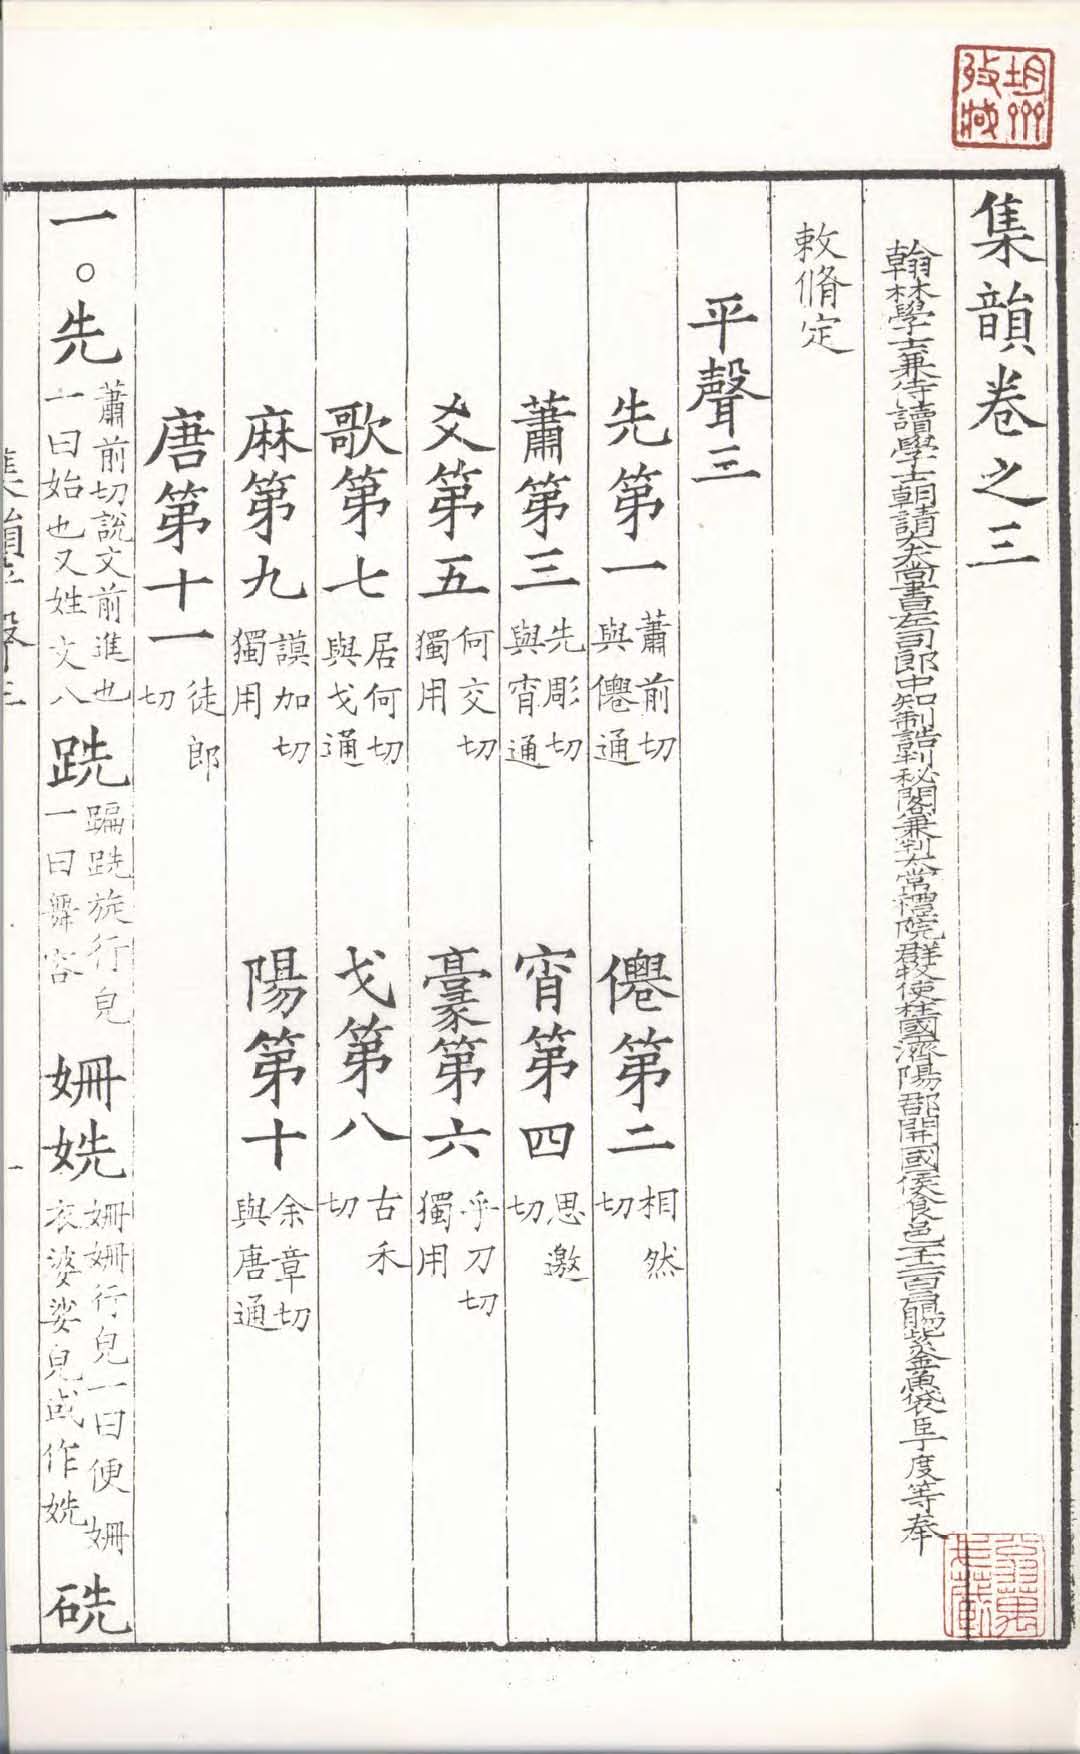 集韻卷之三
翰林學士兼侍讀學士朝請大夫尚書左司郎中知制誥判秘閣兼判太常禮院群牧使柱國濟陽郡開國侯食邑一千二百戶賜紫金魚袋臣丁度等奉
敕脩定
平聲三
先第一 蕭前切與僊通
僊第二 相然切
蕭第三 先彫切與宵通
宵第四 思邀切
爻第五 何交切獨用
豪第六 乎刀切獨用
歌第七 居何切與戈通
戈第八 古禾切
麻第九 謨加切獨用
陽第十 余章切與唐通
唐第十一 徒郎切
一。先 蕭前切說文前進也一曰始也又姓文八
跣 蹁跣旋行皃一曰舞容
姍姺 姍姍行皃一曰便姍衣婆娑皃或作姺
硄